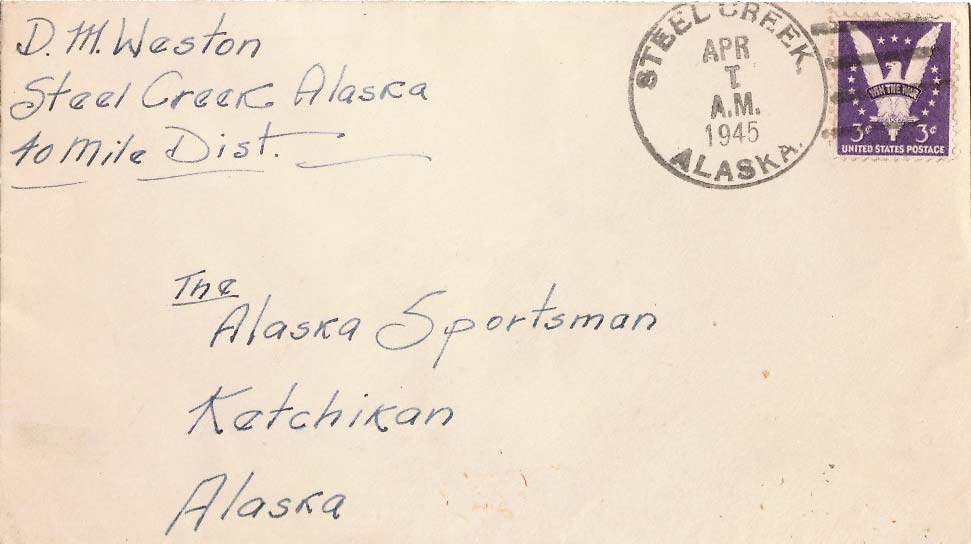 D. M. Weston
Steel Creek Alaska
40 Mile Dist.
STEEL CREEK,
APR
1
A.M.
1945
ALASKA.
WIN THE WAR
3¢ 3¢
UNITED STATES POSTAGE
The
Alaska Sportsman
Ketchikan
Alaska